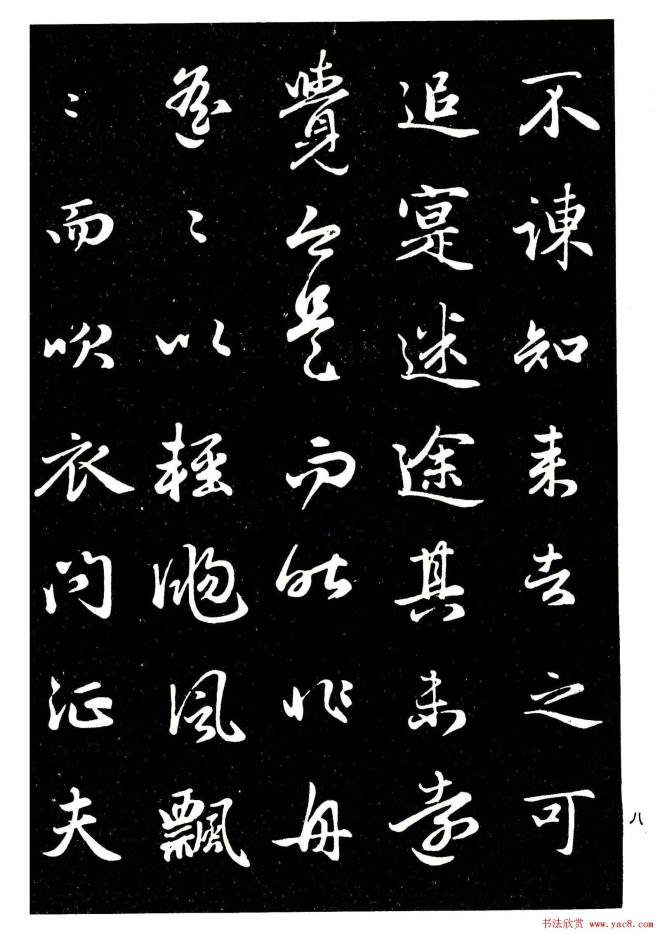 不諫知来者之可
追寔迷途其未遠
覺今是而昨非舟
遙〻以輕颺風飄
〻而吹衣問征夫
八
书法欣赏 www.yac8.com